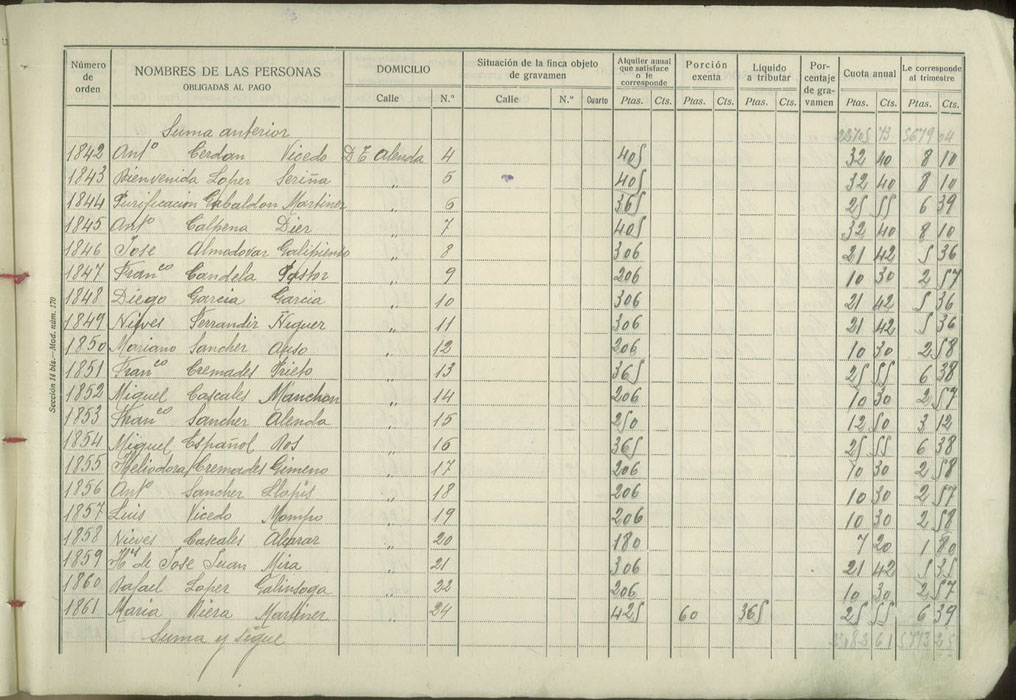 Número de orden NOMBRES DE LAS PERSONAS OBLIGADAS AL PAGO DOMICILIO Situación de la finca objeto de gravamen Alquiler anual que satisface o le corresponde Porción exenta Líquido a tributar Porcentaje de gravamen Cuota anual Le corresponde al trimestre
Calle N.º Calle N.º Cuarto Ptas. Cts. Ptas. Cts. Ptas. Cts. Ptas. Cts. Ptas. Cts.
Suma anterior 22705 73 5679 04
1842 Antº Cerdan Vicedo D E Alenda 4 405 32 40 8 10
1843 Bienvenida Loper Seriña „ 5 405 32 40 8 10
1844 Purificacion Gabaldon Martiner „ 6 365 25 55 6 39
1845 Antº Calpena Dier „ 7 405 32 40 8 10
1846 Jose Almadovar Galipienso „ 8 306 21 42 5 36
1847 Franco Candela Pastor „ 9 206 10 30 2 57
1848 Diego Garcia Garcia „ 10 306 21 42 5 36
1849 Nieves Ferrandir Ñiguer „ 11 306 21 42 5 36
1850 Mariano Sancher Auso „ 12 206 10 30 2 58
1851 Franco Cremades Prieto „ 13 365 25 55 6 38
1852 Miguel Cascales Manchon „ 14 206 10 30 2 57
1853 Franco Sancher Alenda „ 15 250 12 50 3 12
1854 Miguel Español Ros „ 16 365 25 55 6 38
1855 Heliodora Cremades Gimeno „ 17 206 10 30 2 58
1856 Antº Sancher Llopis „ 18 206 10 30 2 57
1857 Luis Vicedo Mompo „ 19 206 10 30 2 58
1858 Nieves Cascales Alcarar „ 20 180 7 20 1 80
1859 Hos de Jose Juan Mira „ 21 306 21 42 5 35
1860 Rafael Loper Galinsoga „ 22 206 10 30 2 57
1861 Maria Riera Martiner „ 24 425 60 365 25 55 6 39
Suma y sigue 61 5773 25
Sección 14 bis.—Mod. núm. 170